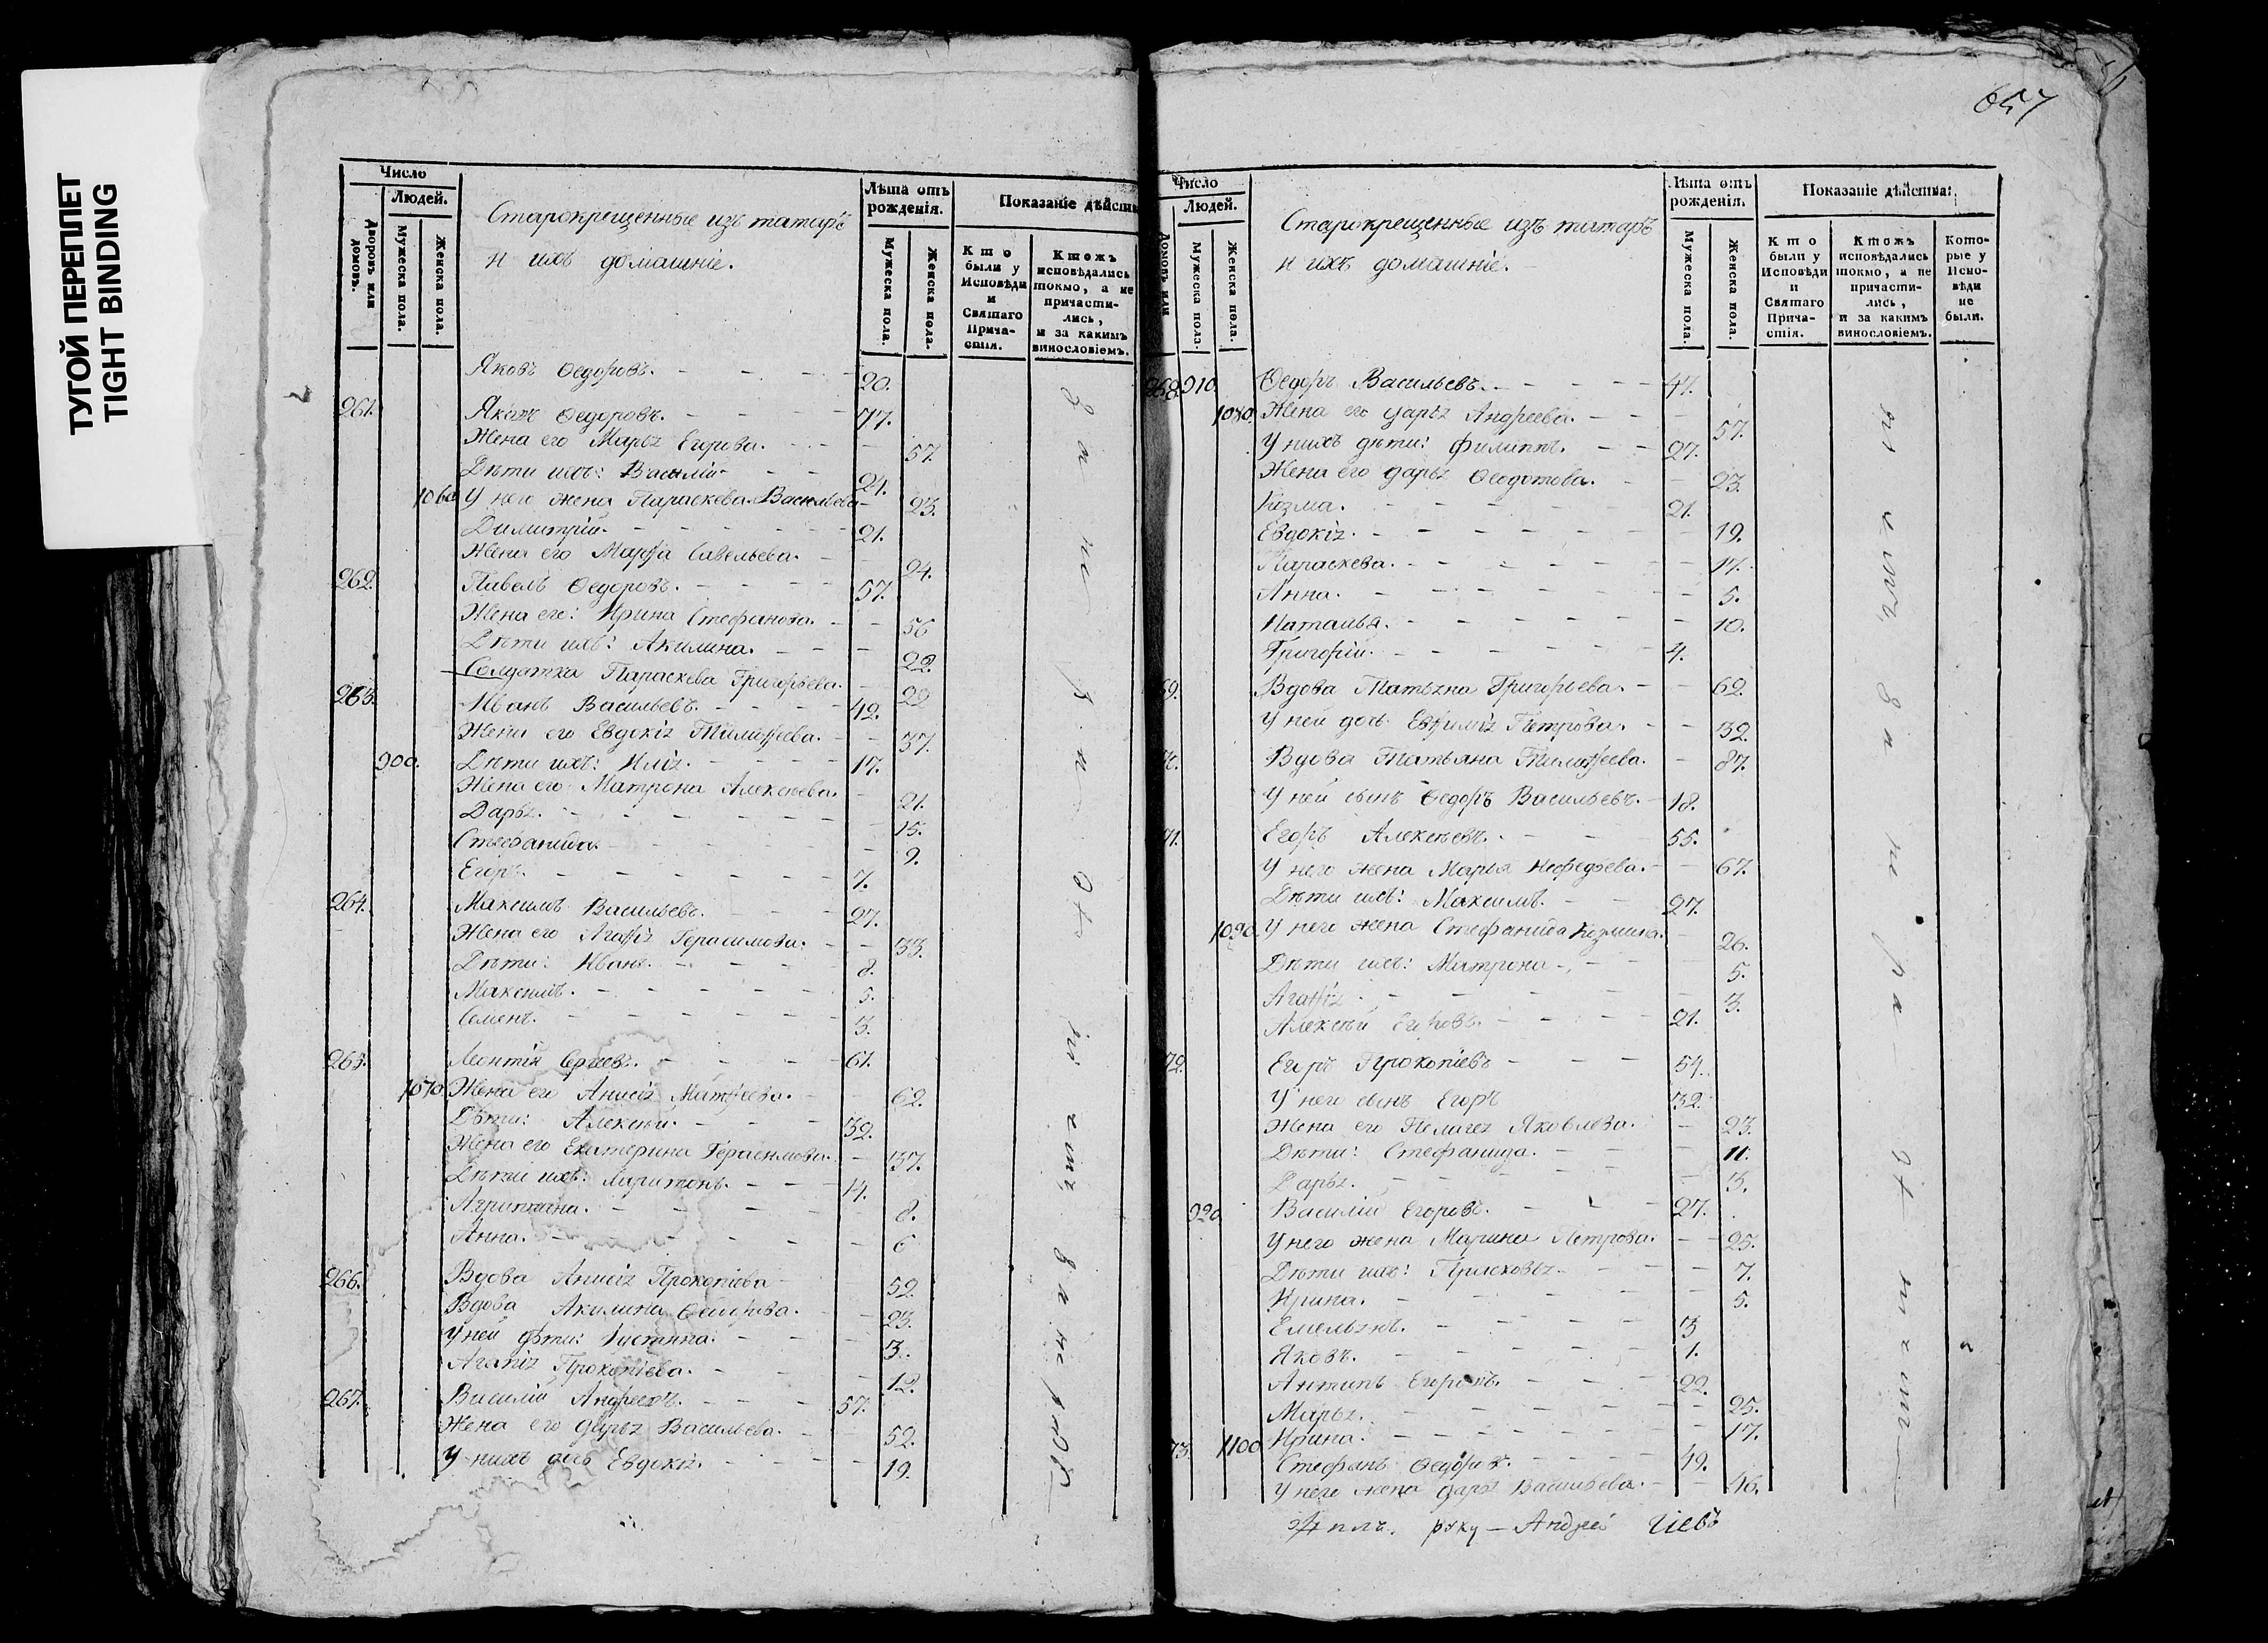 ТУГОЙ ПЕРЕПЛЕТ
TIGHT BINDING
657
Число
Людей.
Дворовъ или домовъ.
Мужеска пола.
Женска пола.
Старокрещенные изъ татаръ
и ихъ домашніе.
Лѣта отъ рожденія.
Мужеска пола.
Женска пола.
Показаніе дѣйств
Кто были у Исповѣди и Святаго Прича-стія.
Ктожъ исповѣдались токмо, а не причасти-лись, и за какимъ винословіемъ.
Яковъ Ѳедоровъ. 20.
261. Яковъ Ѳедоровъ. 77.
Жена его Марья Егорова. 57.
Дѣти ихъ: Василій 24.
1060 У него жена Параскева Васильева 23.
Димитрій. 21.
Жена его Марѳа Савельева. 24.
262. Павелъ Ѳедоровъ. 57.
Жена его: Ирина Стефанова. 56
Дѣти ихъ: Акилина. 22.
Солдатка Параскева Григорьева. 29
263. Иванъ Васильевъ. 42.
Жена его Евдокія Тимоѳеева. 37.
900. Дѣти ихъ: Илія. 17.
Жена его Матрона Алексѣева. 21.
Дарья. 15.
Стефанида. 9.
Егоръ. 7.
264. Максимъ Васильевъ. 27.
Жена его Агаѳія Герасимова. 33.
Дѣти: Иванъ. 8.
Максимъ. 5.
Семенъ. 3.
265. Леонтій Сергеевъ. 61.
1070 Жена его Анисія Матѳеева. 62.
Дѣти: Алексѣй. 39.
Жена его Екатерина Герасимова. 37.
Дѣти ихъ: Харитонъ. 14.
Агрипина. 8.
Анна. 6
266. Вдова Анисія Прокопіева 52.
Вдова Акилина Ѳедорова. 23.
У ней дѣти: Іустина. 3.
Агапія Прокопіева. 12.
267. Василій Андреевъ. 57.
Жена его Дарья Васильева. 52.
У нихъ дочь Евдокія. 19.
Число
Людей.
Домовъ или
Мужеска пола.
Женска пола.
Старокрещенные изъ татаръ
и ихъ домашніе.
Лѣта отъ рожденія.
Мужеска пола.
Женска пола.
Показаніе дѣйства:
Кто были у Исповѣди и Святаго Прича-стія.
Ктожъ исповѣдались токмо, а не причасти-лись, и за какимъ винословіемъ.
Кото-рые у Испо-вѣди не были.
268. 910. Ѳедоръ Васильевъ. 47.
1080. Жена его Дарья Андреева. 57.
У нихъ дѣти: Филиппъ. 27.
Жена его Дарья Ѳеодотова. 23.
Козма. 21.
Евдокія. 19.
Параскева. 17.
Анна. 5.
Наталья. 10.
Григорій. 4.
69. Вдова Татьяна Григорьева. 62.
У ней дочь Евѳимія Петрова. 32.
Вдова Татьяна Тимоѳеева. 87.
У ней сынъ Ѳедоръ Васильевъ. 18.
71. Егоръ Алексѣевъ. 55.
У него жена Марья Нефедьева. 67.
Дѣти ихъ: Максимъ. 27.
1090. У него жена Стефанида Козмина. 26.
Дѣти ихъ: Матрона 5.
Агаѳія. 3.
Алексѣй Егоровъ. 21.
72. Егоръ Прокопіевъ 54.
У него сынъ Егоръ 32.
Жена его Пелагея Яковлева. 23.
Дѣти: Стефанида. 11.
Дарья. 3.
920 Василій Егоровъ. 27.
У него жена Марина Петрова. 25.
Дѣти ихъ: Прасковья. 7.
Ирина. 5.
Емельянъ. 3
Яковъ. 1.
Антипъ Егоровъ. 22.
Марья. 25.
1100 Ирина. 17.
73. Стефанъ Ѳедоровъ. 49.
У него жена Дарья Васильева. 46.
руку Андрей